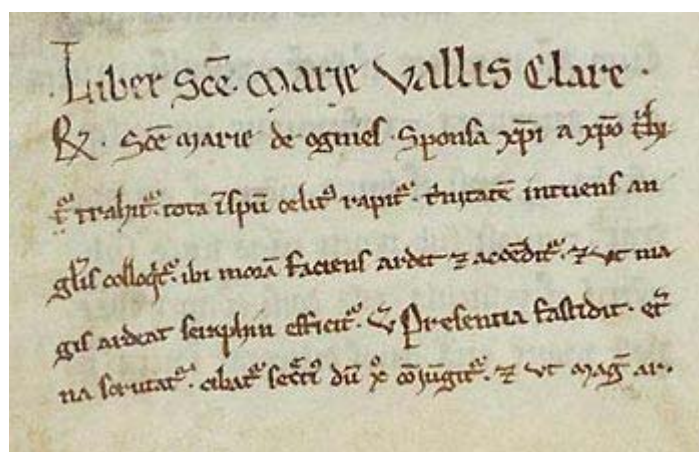 Liber Sce. Marie Vallis Clare.
R. Sce Marie de ognies. Sponsa xpi a xpo
trahit. tota celit rapit. intuens an
glis colloqt. ibi moram faciens ardet ⁊ accendit. ⁊ ut ma
gis ardeat seraphin efficit. V Presentia fastidit. et
na scrutat. cibat dum coniungit. ⁊ ut mag ar.